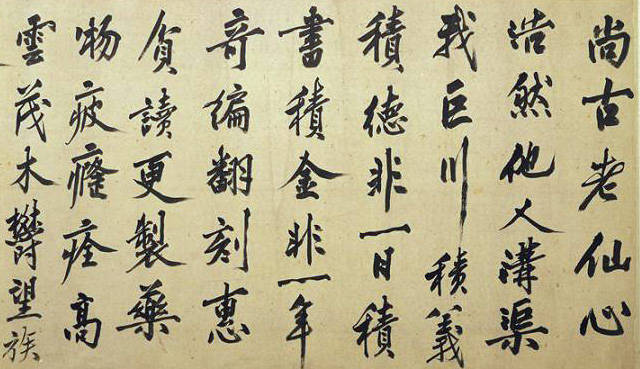 尚古老仙心
浩然他人溝渠
我巨川積義
積德非一日積
書積金非一年
奇編翻刻惠
貧讀更製藥
物疲癃痊高
雲茂木鬱望族